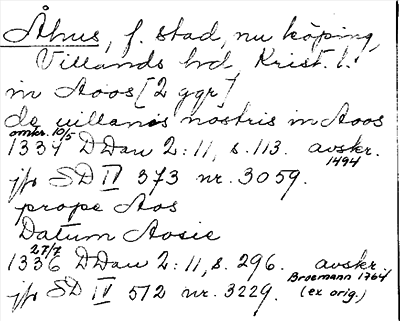 Åhus, f. stad, nu köping,
Villands hd, Krist. l.
in Aoos [2 ggr]
de uillanis nostris in Aoos
omkr. 10/5
1334 DDan 2:11, s. 113. avskr. 1494
jfr SD IV 373 nr. 3059.
prope Aos
Datum Aosie
27/7
1336 DDan 2:11, s. 296. avskr Broemann 1764
jfr SD IV 512 nr. 3229. (ex orig.)